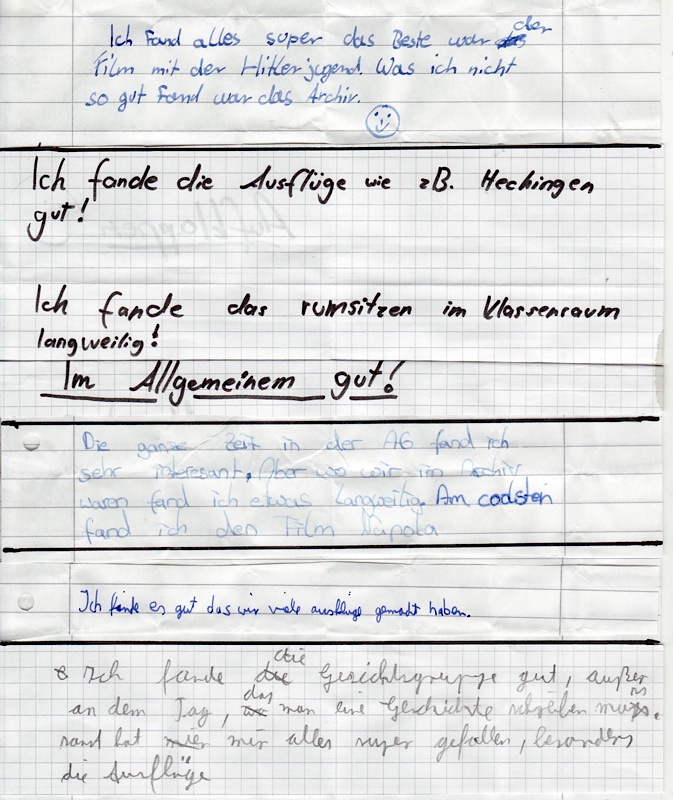 Ich fand alles super das Beste war der
Film mit der Hitlerjugend. Was ich nicht
so gut fand war das Archiv.
Ich fande die Ausflüge wie zB. Hechingen
gut!
Ich fande das rumsitzen im Klassenraum
langweilig!
Im Allgemeinem gut!
Die ganze Zeit in der AG fand ich
sehr interesant. Aber wo wir im Archiv
waren fand ich etwas langweilig. Am coolsten
fand ich den Film Napola
Ich fände es gut das wir viele ausflüge gemacht haben.
Ich fande die Gesichtsgruppe gut, außer
an dem Tag, das man eine Geschichte schreiben muss.
sonst hat mir alles super gefallen, besonders
die Ausflüge